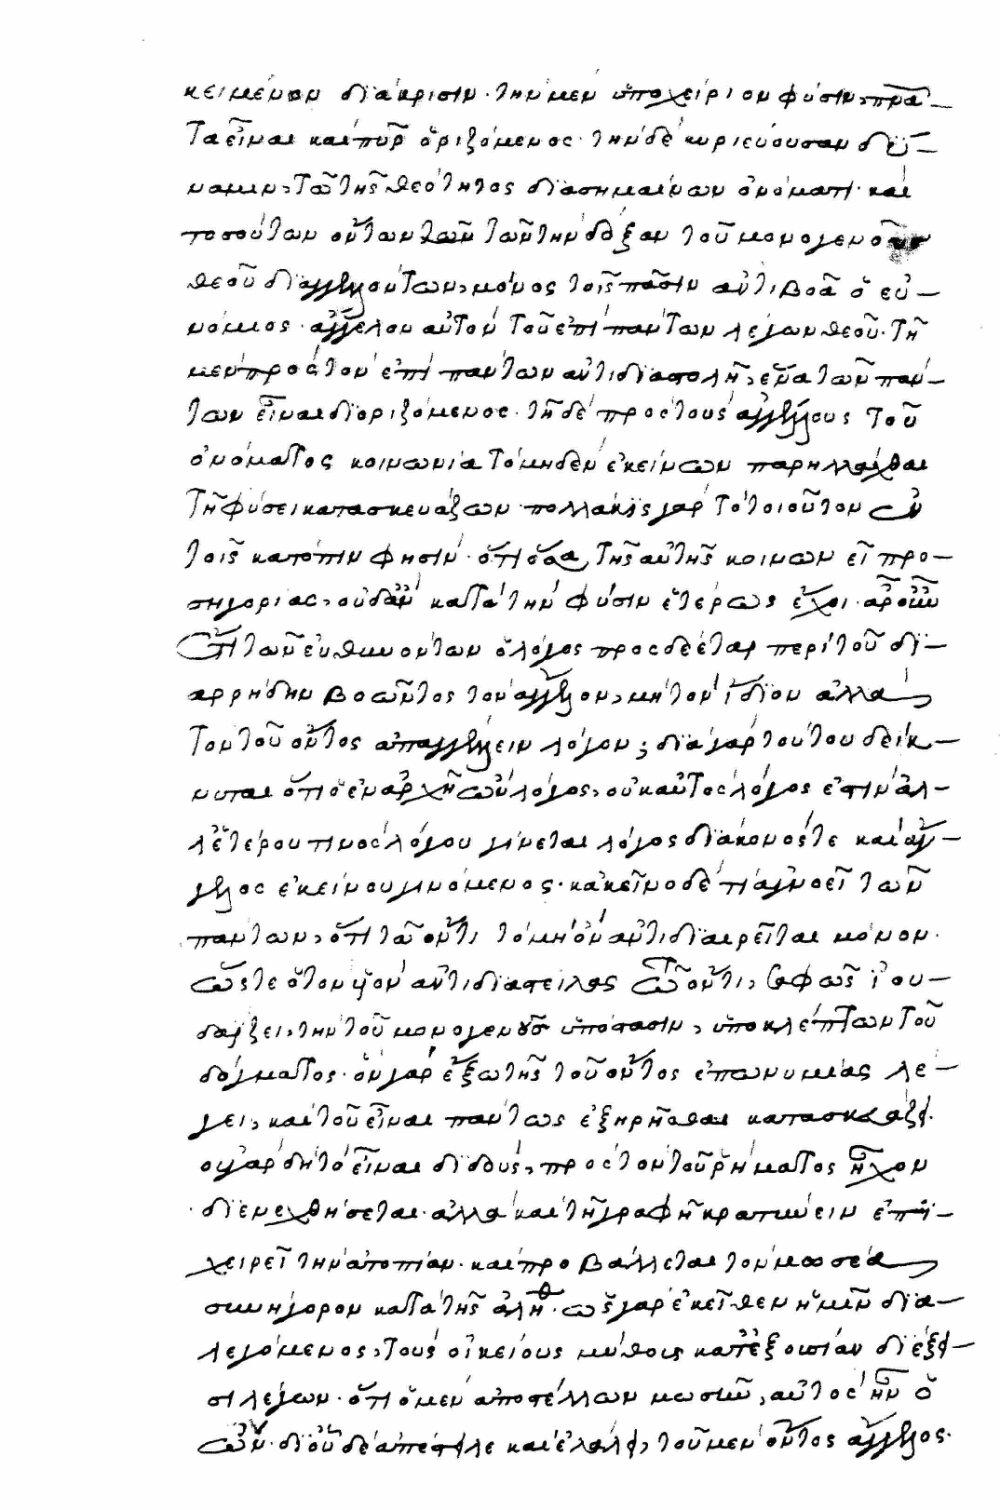 κειμένων διάκρισιν· τὴν μὲν ὑποχείριον φύσιν, πνεύμα-
τα εἶναι καὶ πῦρ ὁριζόμενος· τὴν δὲ κυριεύουσαν δύ-
ναμιν, τῶ τῆς θεότητος διασημαίνων ὀνόματι· καὶ
τοσούτων ὄντων τῶν τὴν δόξαν τοῦ μονογενοῦς
θεοῦ διαγγελλόντων, μόνος τοῖς πᾶσιν ἀντιβοᾶ ὁ εὐ-
νόμιος· ἄγγελον αὐτὸν τοῦ ἐπὶ πάντων λέγων θεοῦ· τῆ
μὲν πρὸς τὸν ἐπὶ πάντων ἀντιδιαστολῆ, ἕνα τῶν πάν-
των εἶναι διοριζόμενος· τῆ δὲ πρὸς τοὺς ἀγγέλους τοῦ
ὀνόματος κοινωνία τὸ μηδὲν ἐκείνων παρηλλάχθαι
τῆ φύσει κατασκευάζων· πολλάκις γὰρ τὸ τοιοῦτον ἐν
τοῖς κατόπιν φησὶν· ὅτι ὅσα τῆς αὐτῆς κοινωνεῖ προ-
σηγορίας, οὐδὲ κατὰ τὴν φύσιν ἑτέρως ἔχει· ἆρ' οὖν
ἔτι τῶν εὐθυνόντων ὁ λόγος προσδέεται περὶ τοῦ δι-
αρρήδην βοῶντος τὸν ἄγγελον, μὴ τὸν ἴδιον ἀλλὰ
τὸν τοῦ ὄντος ἀπαγγέλλειν λόγον; διὰ γὰρ τούτου δείκ-
νυται ὅτι ὁ ἐν ἀρχῆ ὢν λόγος, οὐκ αὐτὸς λόγος ἐστὶν ἀλ-
λ' ἑτέρου τινὸς λόγου γίνεται λόγος διάκονός τε καὶ ἄγ-
γελος ἐκείνου γινόμενος· κἀκεῖνο δὲ τί ἀγνοεῖ τῶν
πάντων, ὅτι τῶ ὄντι τὸ μὴ ὂν ἀντιδιαιρεῖται μόνον·
ὥστε ὁ τὸν υἱὸν ἀντιδιαστείλας τῶ ὄντι, σαφῶς ἰου-
δαΐζει, τὴν τοῦ μονογενοῦς ὑπόστασιν, ὑποκλέπτων τοῦ
δόγματος· ὃν γὰρ ἔξω τῆς τοῦ ὄντος ἐπωνυμίας λέ-
γει, καὶ τοῦ εἶναι πάντως ἐξηρῆσθαι κατασκευάζει.
οὐ γὰρ δὴ τὸ εἶναι διδοὺς, πρὸς τὸν τοῦ ῥήματος ἦχον
διενεχθήσεται· ἀλλὰ καὶ τῆ γραφῆ κρατύνειν ἐπι-
χειρεῖ τὴν ἀτοπίαν· καὶ προβάλλεται τὸν μωσέα
συνήγορον κατὰ τῆς ἀληθ· ὡς γὰρ ἐκεῖθεν ἡμῖν δια-
λεγόμενος, τοὺς οἰκείους μύθους κατ' ἐξουσίαν διέξει-
σι λέγων· ὅτι ὁ μὲν ἀποστέλλων μωσῆν, αὐτὸς ἦν ὁ
ὤν· δι' οὗ δὲ ἀπέστειλε καὶ ἐλάλει, τοῦ μὲν ὄντος ἄγγελος·